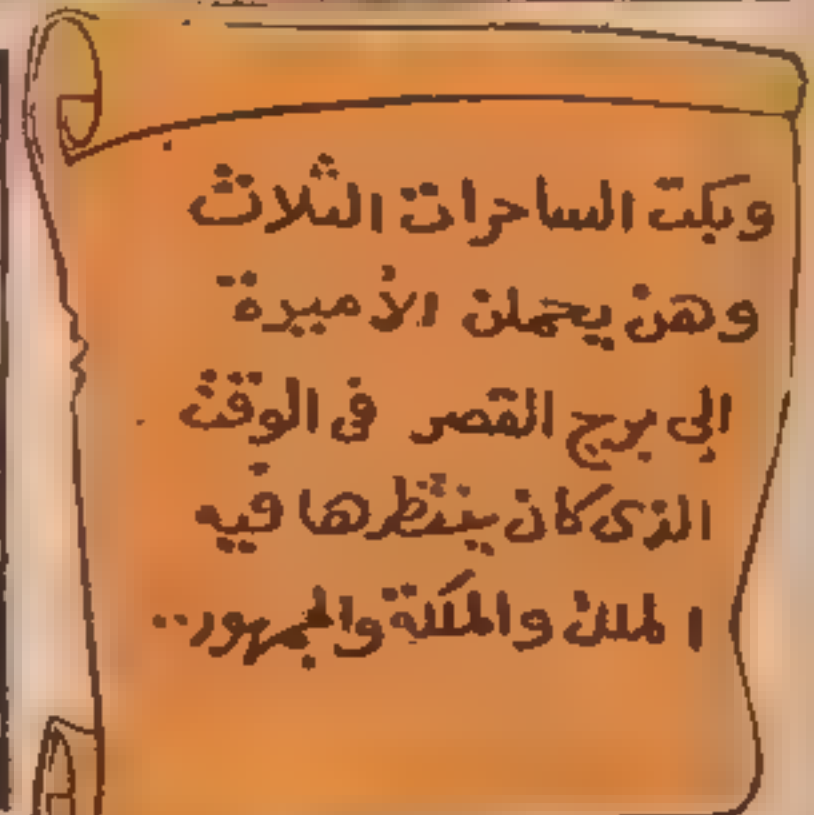 وبكت الساحرات الثلاث
وهن يحملن الأميرة
إلى برج القصر فى الوقت
الذى كان ينتظرها فيه
الملك والملكة والجمهور..